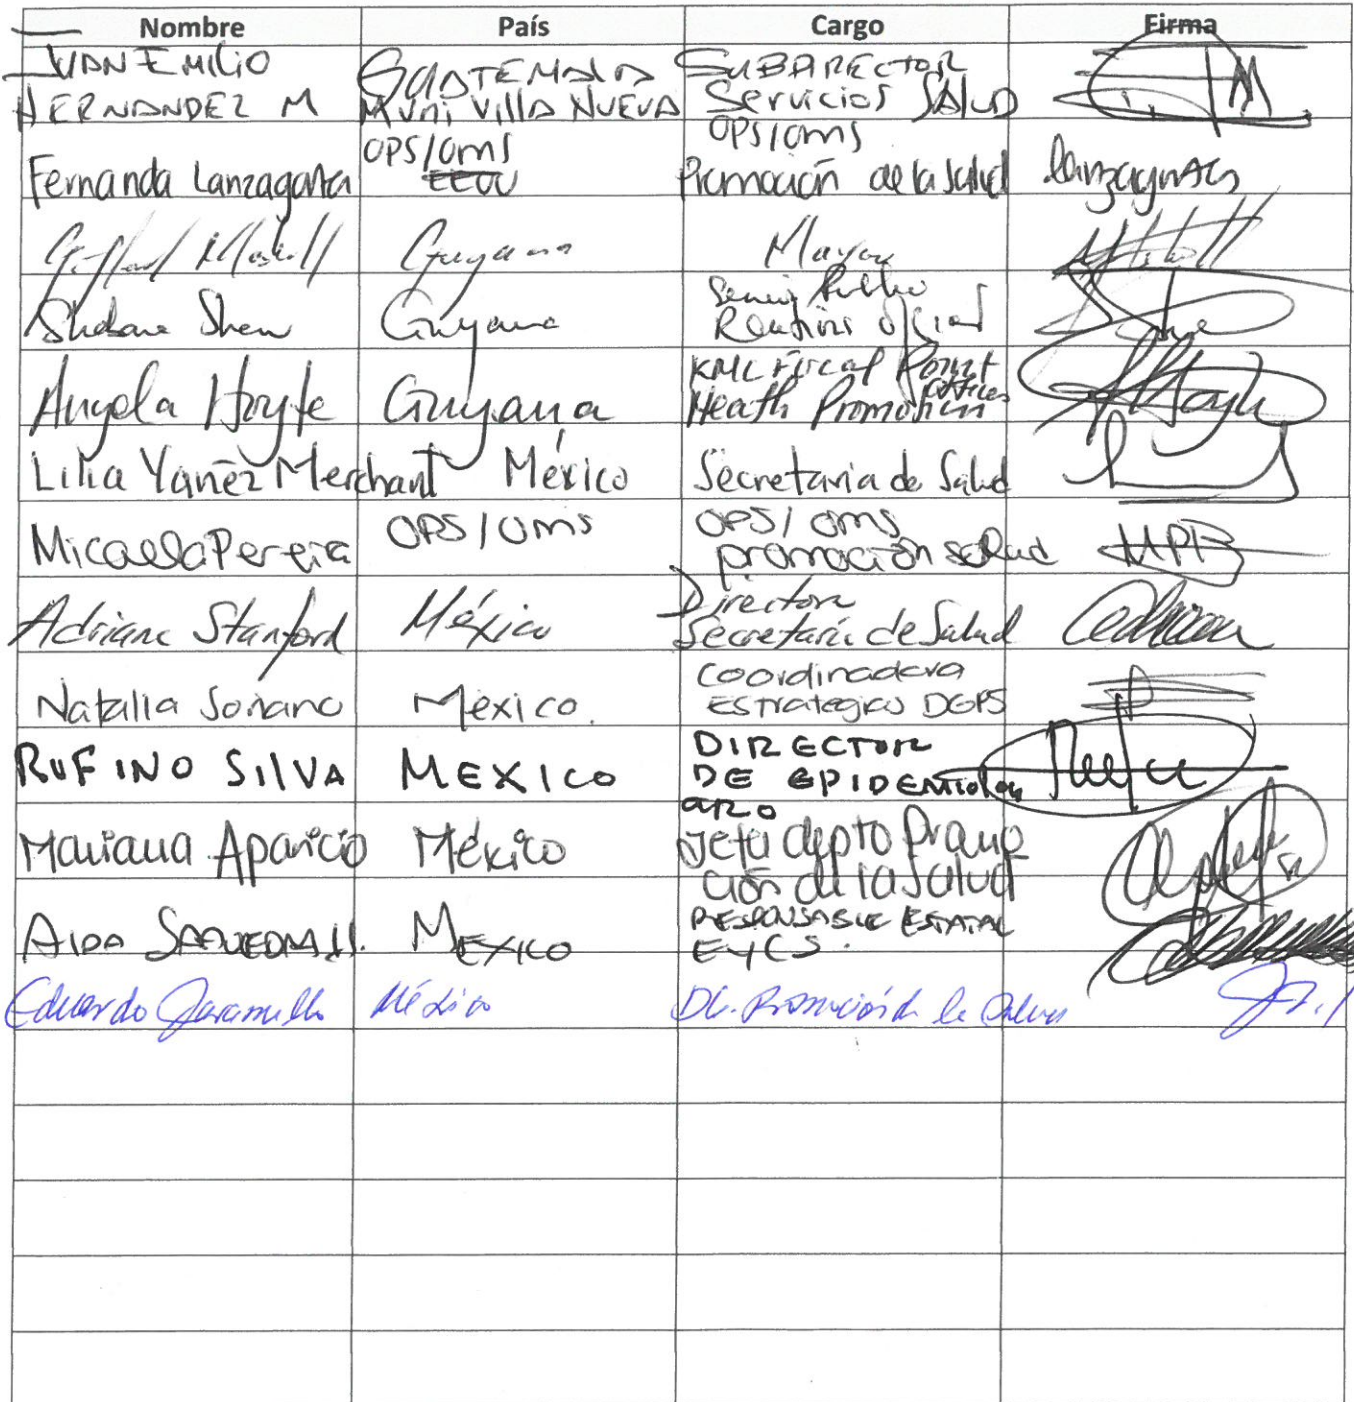 Nombre País Cargo Firma
JUAN EMILIO
HERNANDEZ M
GUATEMALA
MUNI VILLA NUEVA
SUBDIRECTOR
Servicios SALUD
Fernanda Lanzagorta
OPS/OMS
EEUU
OPS/OMS
Promoción de la salud
Lanzagorta
Guyana
Mayor
Shaw
Guyana
Senior Public
Angela Hoyte
Guyana
KMC Focal Point
Health Promotion
Offices
Lilia Yañez Merchant
México
Secretaria de Salud
Micaela Pereira
OPS/OMS
OPS/OMS
promoción salud
MPB
Adriana Stanford
México
Directora
Secretaría de Salud
Natalia Soriano
México.
Coordinadora
Estratégica DGPS
RUFINO SILVA
MEXICO
DIRECTOR
DE
Mariana Aparicio
México
Jefa depto Promo
ción de la salud
AIDA
MEXICO
RESPONSABLE ESTATAL
EYCS.
Eduardo Jaramillo
México
Promoción de la Salud